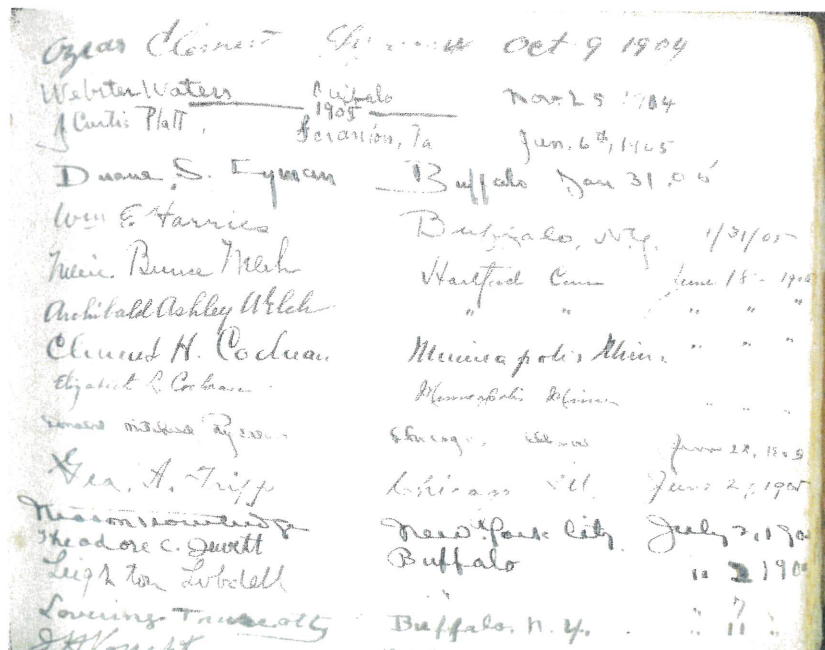 Oct 9 1904
Webster Waters Buffalo Nov. 25 1904
1905
J Curtis Platt, Scranton, Pa Jan. 6th, 1905
Duane S. Lyman Buffalo Jan 31. 05
Wm E. Harries Buffalo, N.Y. 1/31/05
Hartford Conn June 18 - 1905
Archibald Ashley Welch " " " " "
Clement H. Cochran Minneapolis Minn. " " "
Elizabeth L. Cochran Minneapolis Minn " " "
Donald Mitchell Chicago June 22, 1905
Geo. A. Tripp Chicago Ill. June 2 1905
New York City July 2, 190
Theodore C. Jewett Buffalo " 2 190
Leighton Lobdell " " 7
Buffalo, N.Y. " 11 "